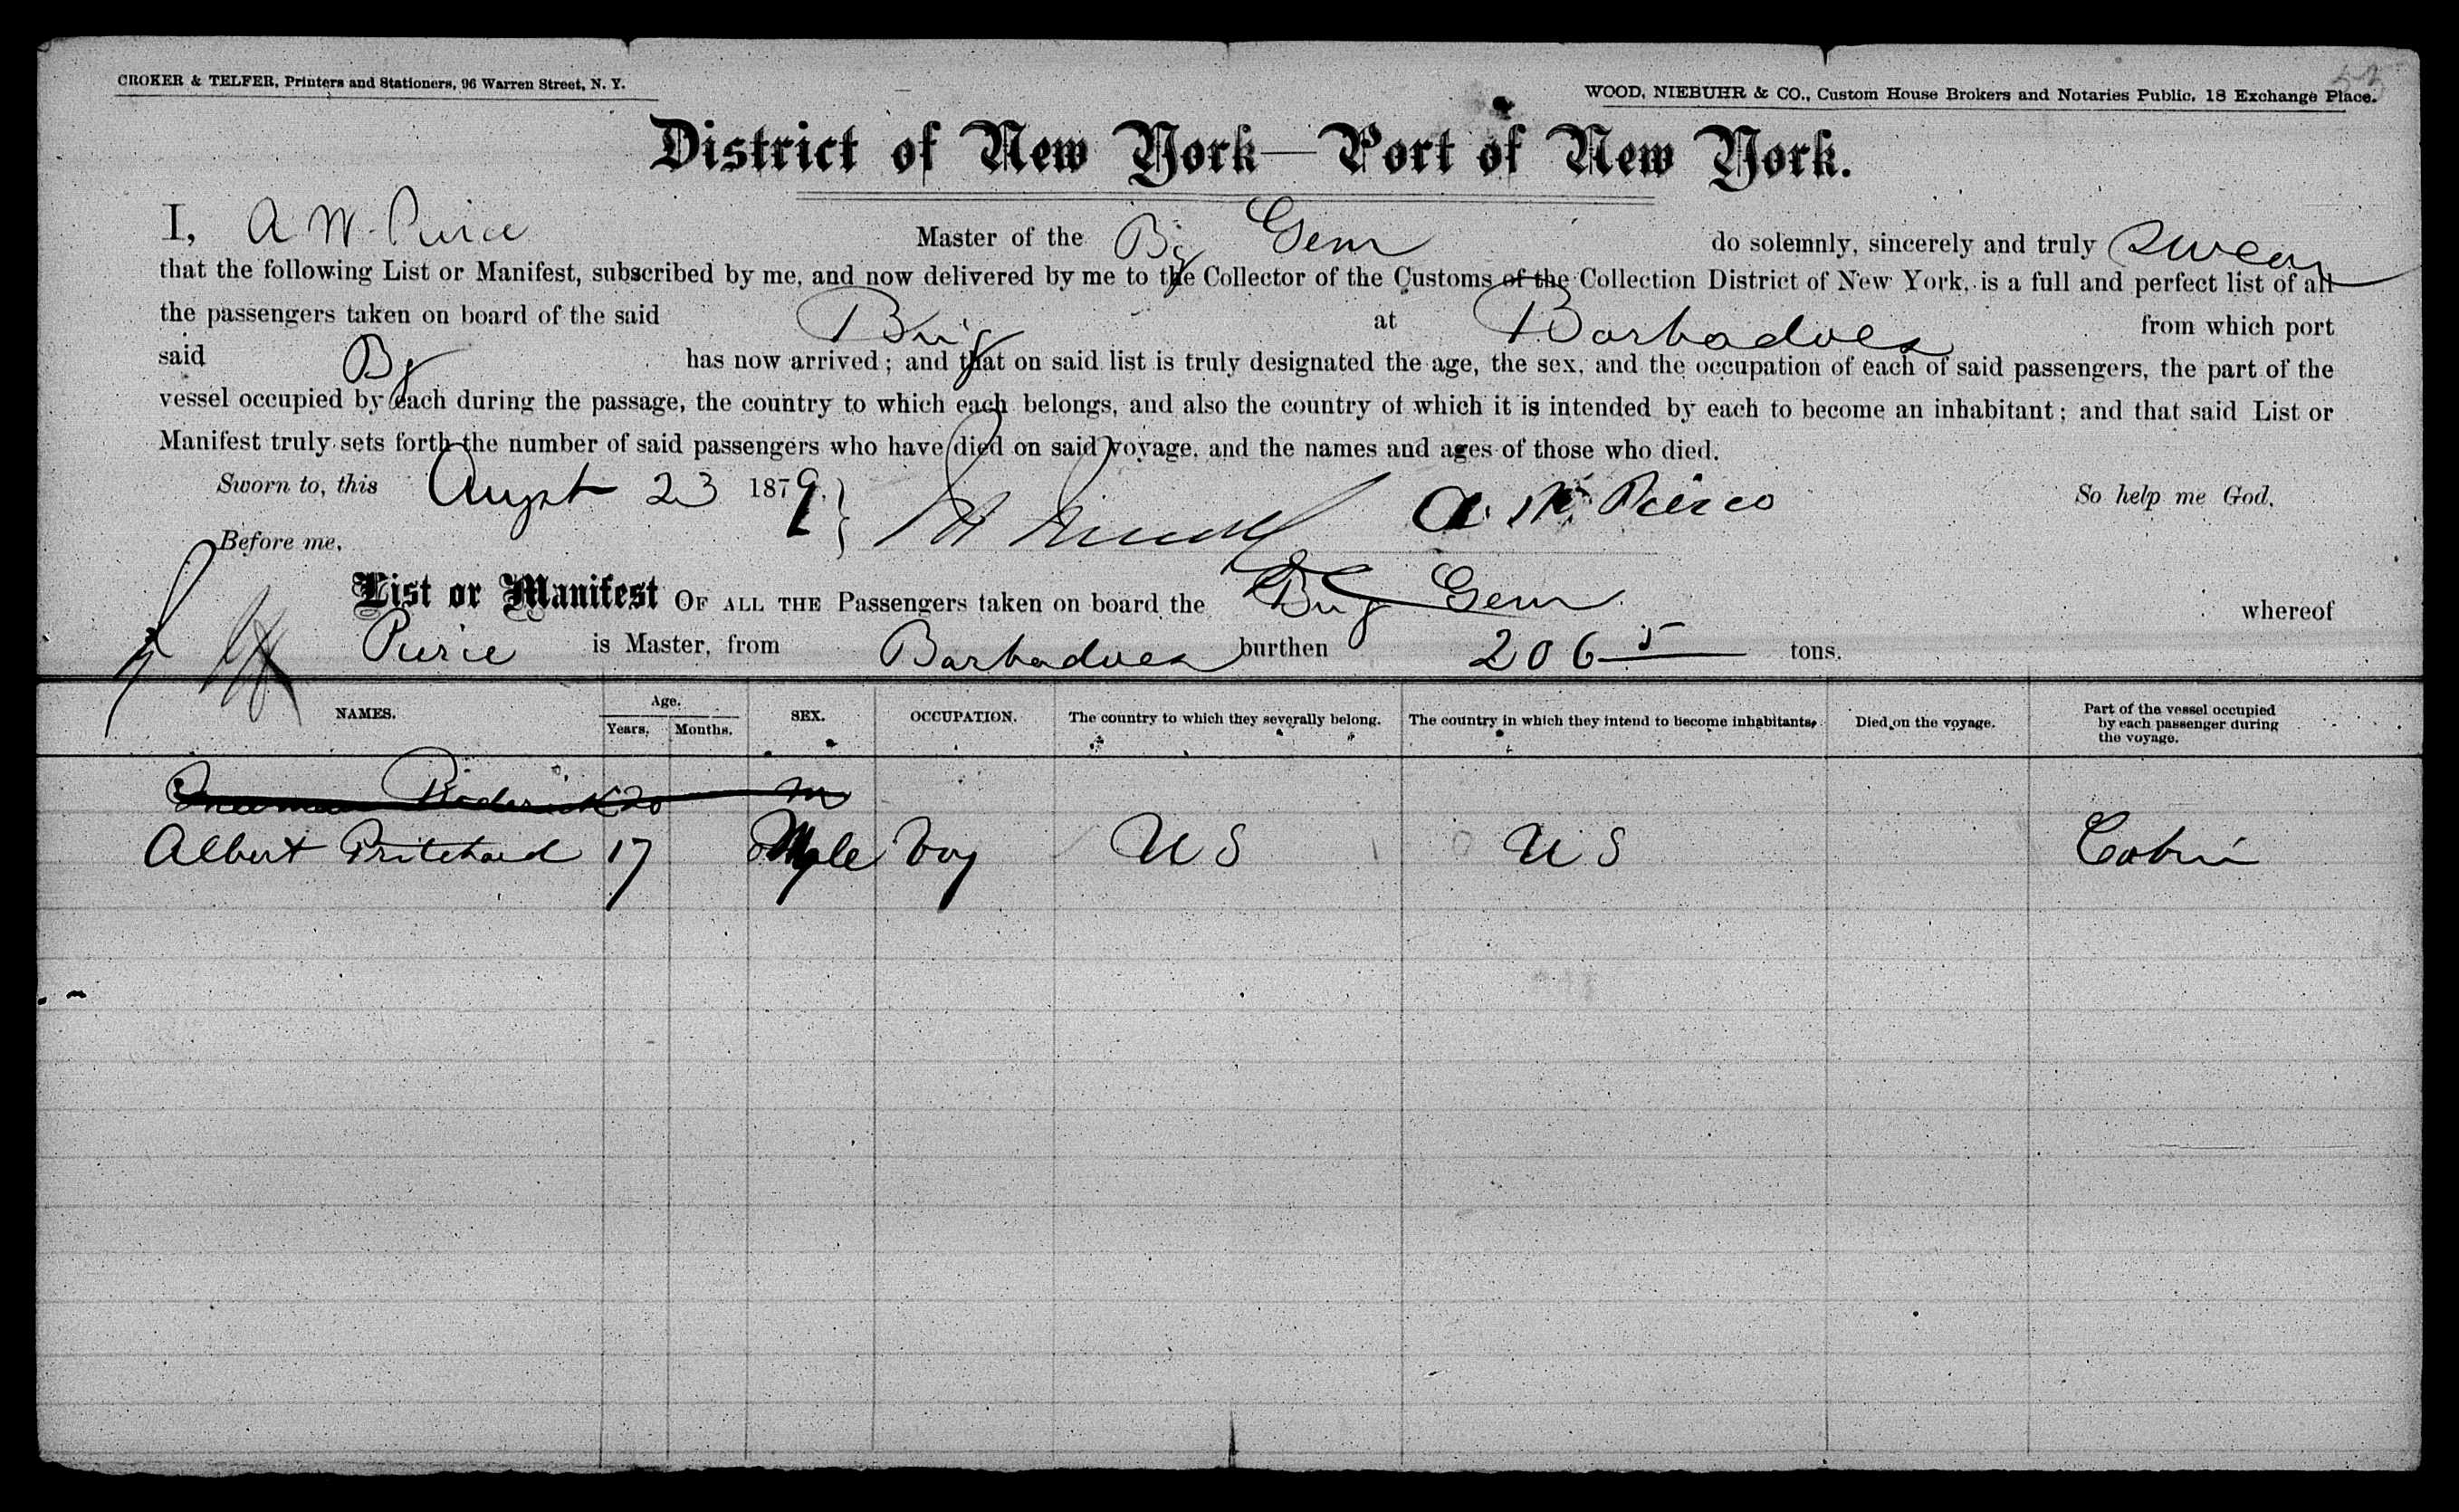 CROKER & TELFER, Printers and Stationers, 96 Warren Street, N. Y.
WOOD, NIEBUHR & CO., Custom House Brokers and Notaries Public, 18 Exchange Place.
District of New York—Port of New York.
I, A W Peirce Master of the Bg Gem do solemnly, sincerely and truly swear
that the following List or Manifest, subscribed by me, and now delivered by me to the Collector of the Customs of the Collection District of New York, is a full and perfect list of all
the passengers taken on board of the said Brig at Barbadoes from which port
said Bg has now arrived; and that on said list is truly designated the age, the sex, and the occupation of each of said passengers, the part of the
vessel occupied by each during the passage, the country to which each belongs, and also the country of which it is intended by each to become an inhabitant; and that said List or
Manifest truly sets forth the number of said passengers who have died on said voyage, and the names and ages of those who died.
Sworn to, this Augst 23 1879. A. W. Peirce So help me God.
Before me,
List or Manifest OF ALL THE Passengers taken on board the Brig Gem whereof
Peirce is Master, from Barbadoes burthen 206 5 tons.
NAMES. Age. Years. Months. SEX. OCCUPATION. The country to which they severally belong. The country in which they intend to become inhabitants. Died on the voyage. Part of the vessel occupied by each passenger during the voyage.
Roderick 20 m
Albert Pritchard 17 Male boy U S U S Cabin